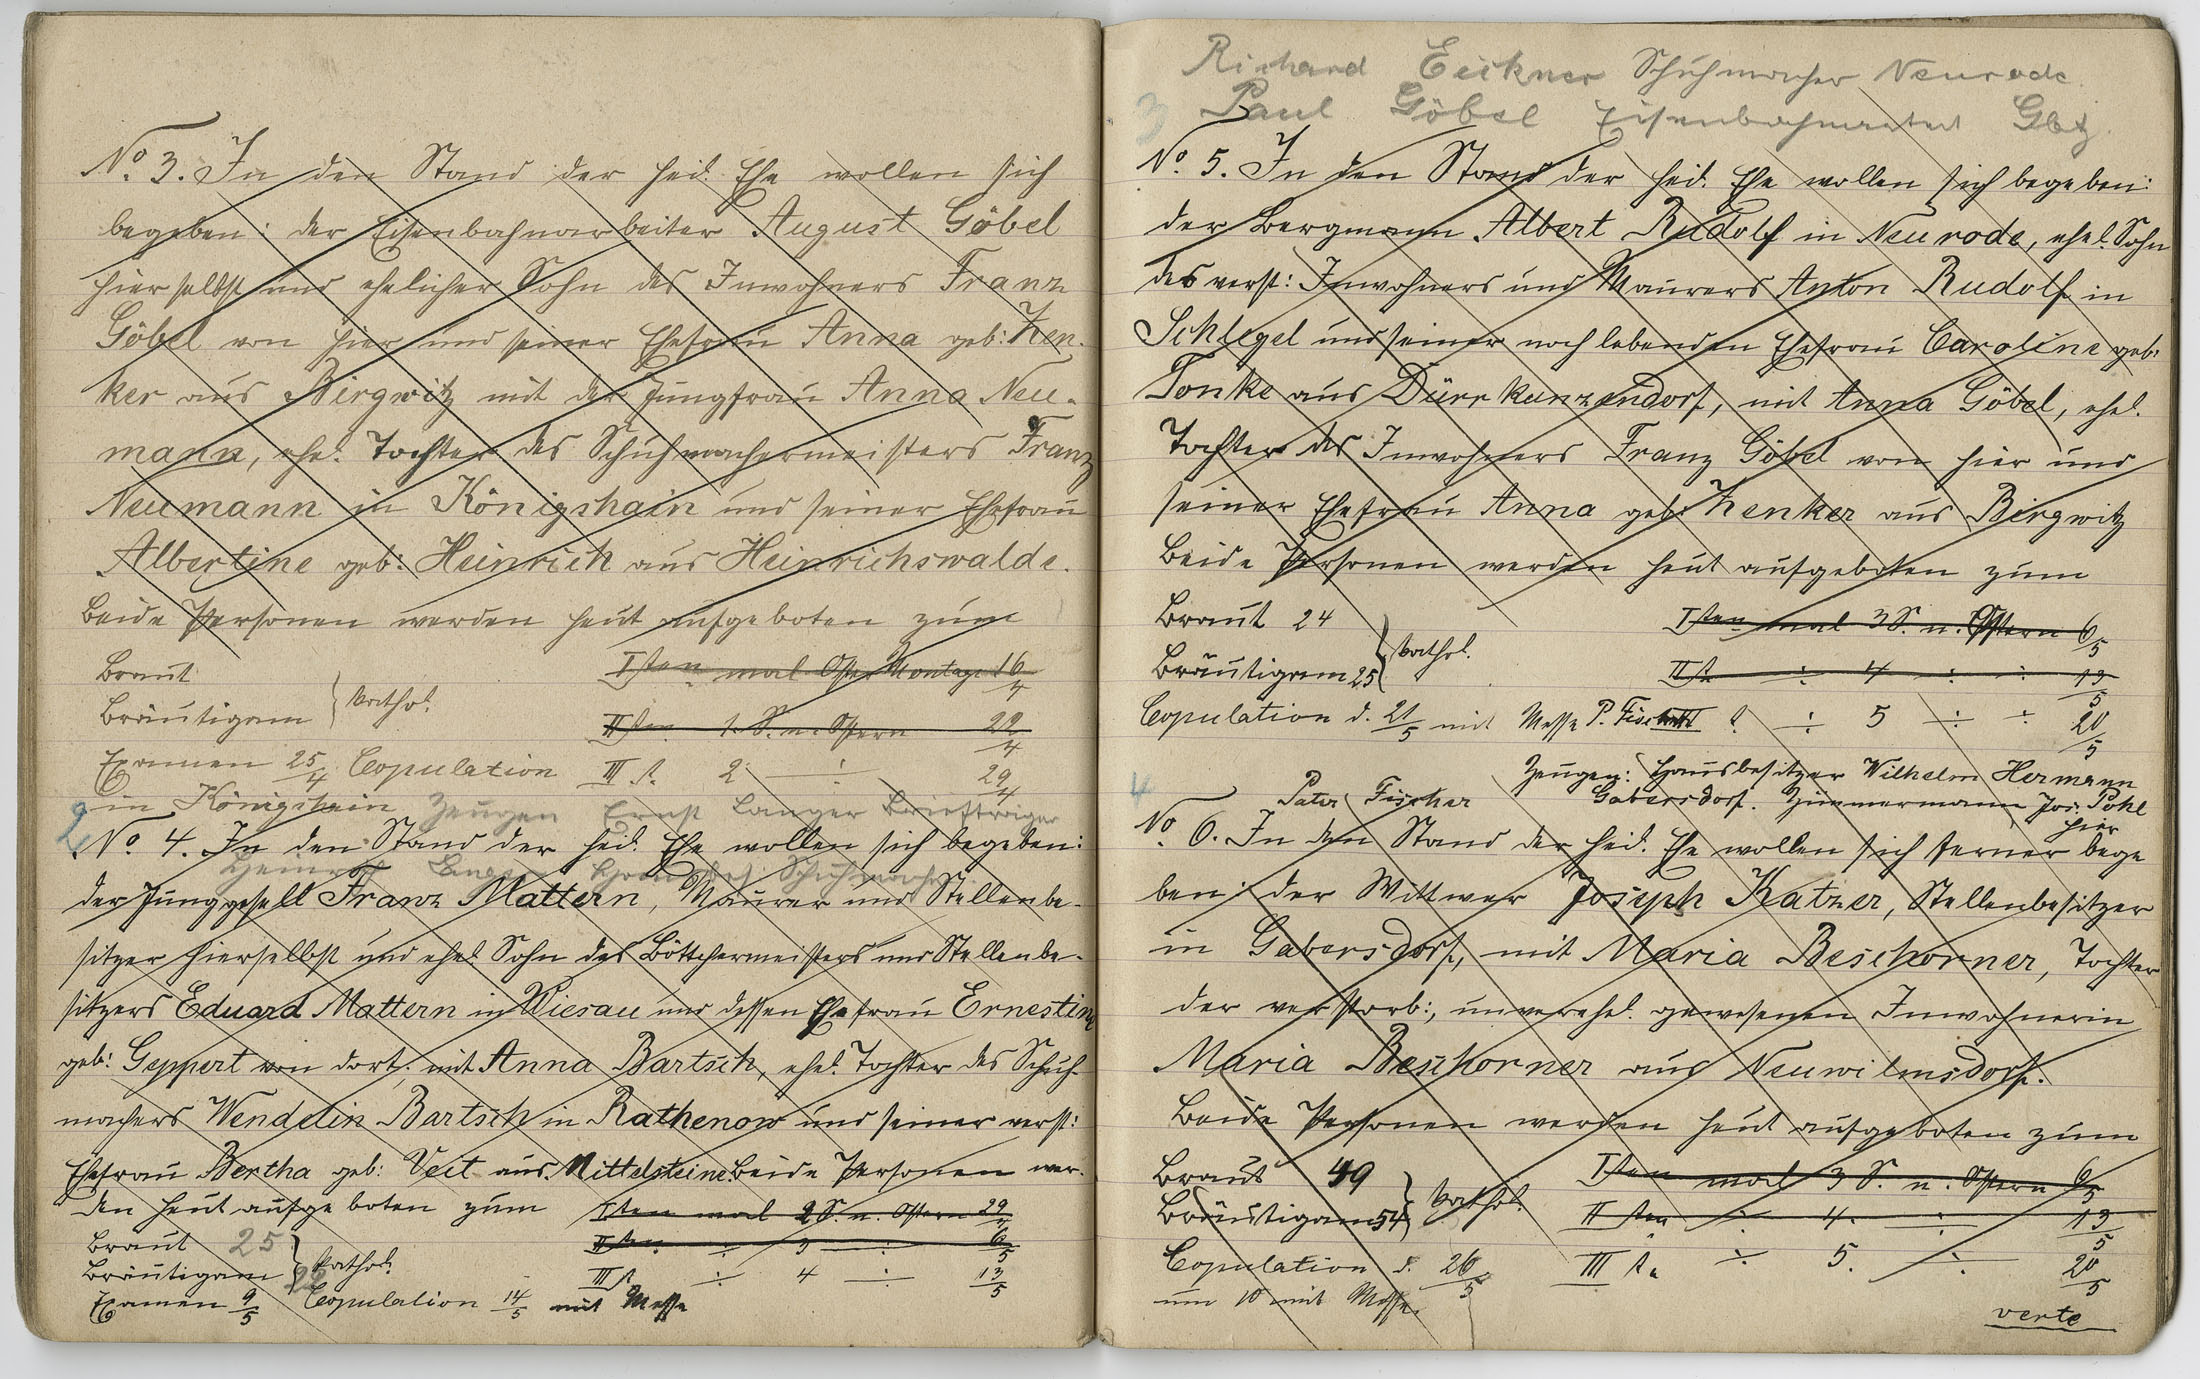 No. 3. In den Stand der heil. Ehe wollen sich
begeben: der Eisenbahnarbeiter August Göbel
hierselbst und ehelicher Sohn des Inwohners Franz
Göbel von hier und seiner Ehefrau Anna geb: Zen-
ker aus Birgwitz mit der Jungfrau Anna Neu-
mann, ehel. Tochter des Schuhmachermeisters Franz
Neumann in Königshain und seiner Ehefrau
Albertine geb: Heinrich aus Heinrichswalde.
Beide Personen werden heut aufgeboten zum
Braut } kathol. Isten mal Oster Montage 16/4
Bräutigam IIten 1. S. n. Ostern 22/4
Examen 25/4 Copulation III t. 2 ÷ 29/4
in Königshain Zeugen Ernst Langer Briefträger
2
No. 4. In den Stand der heil. Ehe wollen sich begeben:
Heinrich Schuhmacher
der Junggesell Franz Mattern, Maurer und Stellenbe-
sitzer hierselbst und ehel. Sohn des Böttchermeisters und Stellenbe-
sitzers Eduard Mattern in Wiesau und dessen Ehefrau Ernestine
geb: Geppert von dort, mit Anna Bartsch, ehel. Tochter des Schuh-
machers Wendelin Bartsch in Rathenow und seiner verst:
Ehefrau Bertha geb: Veit aus Mittelsteine. Beide Personen wer-
den heut aufgeboten zum Isten mal 2 S. n. Ostern 29/4
Braut 25 } kathol. IIten ÷ 3 ÷ 6/5
Bräutigam 22 III t ÷ 4 ÷ 13/5
Examen 9/5 Copulation 14/5 mit Messe
Richard Eickner Schuhmacher Neurode
3 Paul Göbel Eisenbahnarbeit Glatz
No. 5. In den Stand der heil. Ehe wollen sich begeben:
der Bergmann Albert Rudolf in Neurode, ehel. Sohn
des verst: Inwohners und Maurers Anton Rudolf in
Schlegel und seiner noch lebenden Ehefrau Caroline geb:
Tonke aus Dürrkunzendorf, mit Anna Göbel, ehel.
Tochter des Inwohners Franz Göbel von hier und
seiner Ehefrau Anna geb: Zenker aus Birgwitz
Beide Personen werden heut aufgeboten zum
Braut 24 } kathol. Isten mal 3 S. n. Ostern 6/5
Bräutigam 25 II t. ÷ 4 ÷ ÷ 13/5
Copulation d. 21/5 mit Messe P. Fischer III t ÷ 5 ÷ ÷ 20/5
Zeugen: Hausbesitzer Wilhelm Hermann
4 Pater Fischer Gabersdorf. Zimmermann Jos. Pohl
hier
No. 6. In den Stand der heil. Ehe wollen sich ferner bege
ben: der Wittwer Joseph Katzer, Stellenbesitzer
in Gabersdorf, mit Maria Beschorner, Tochter
der verstorb:, unverehel. gewesenen Inwohnerin
Maria Beschorner aus Neuwilmsdorf.
Beide Personen werden heut aufgeboten zum
Braut 49 } kathol. Isten mal 3 S. n. Ostern 6/5
Bräutigam 54 II ten ÷ 4. ÷ 13/5
Copulation d. 26/5 III t. ÷ 5. ÷ 20/5
um 10 mit Messe.
verte